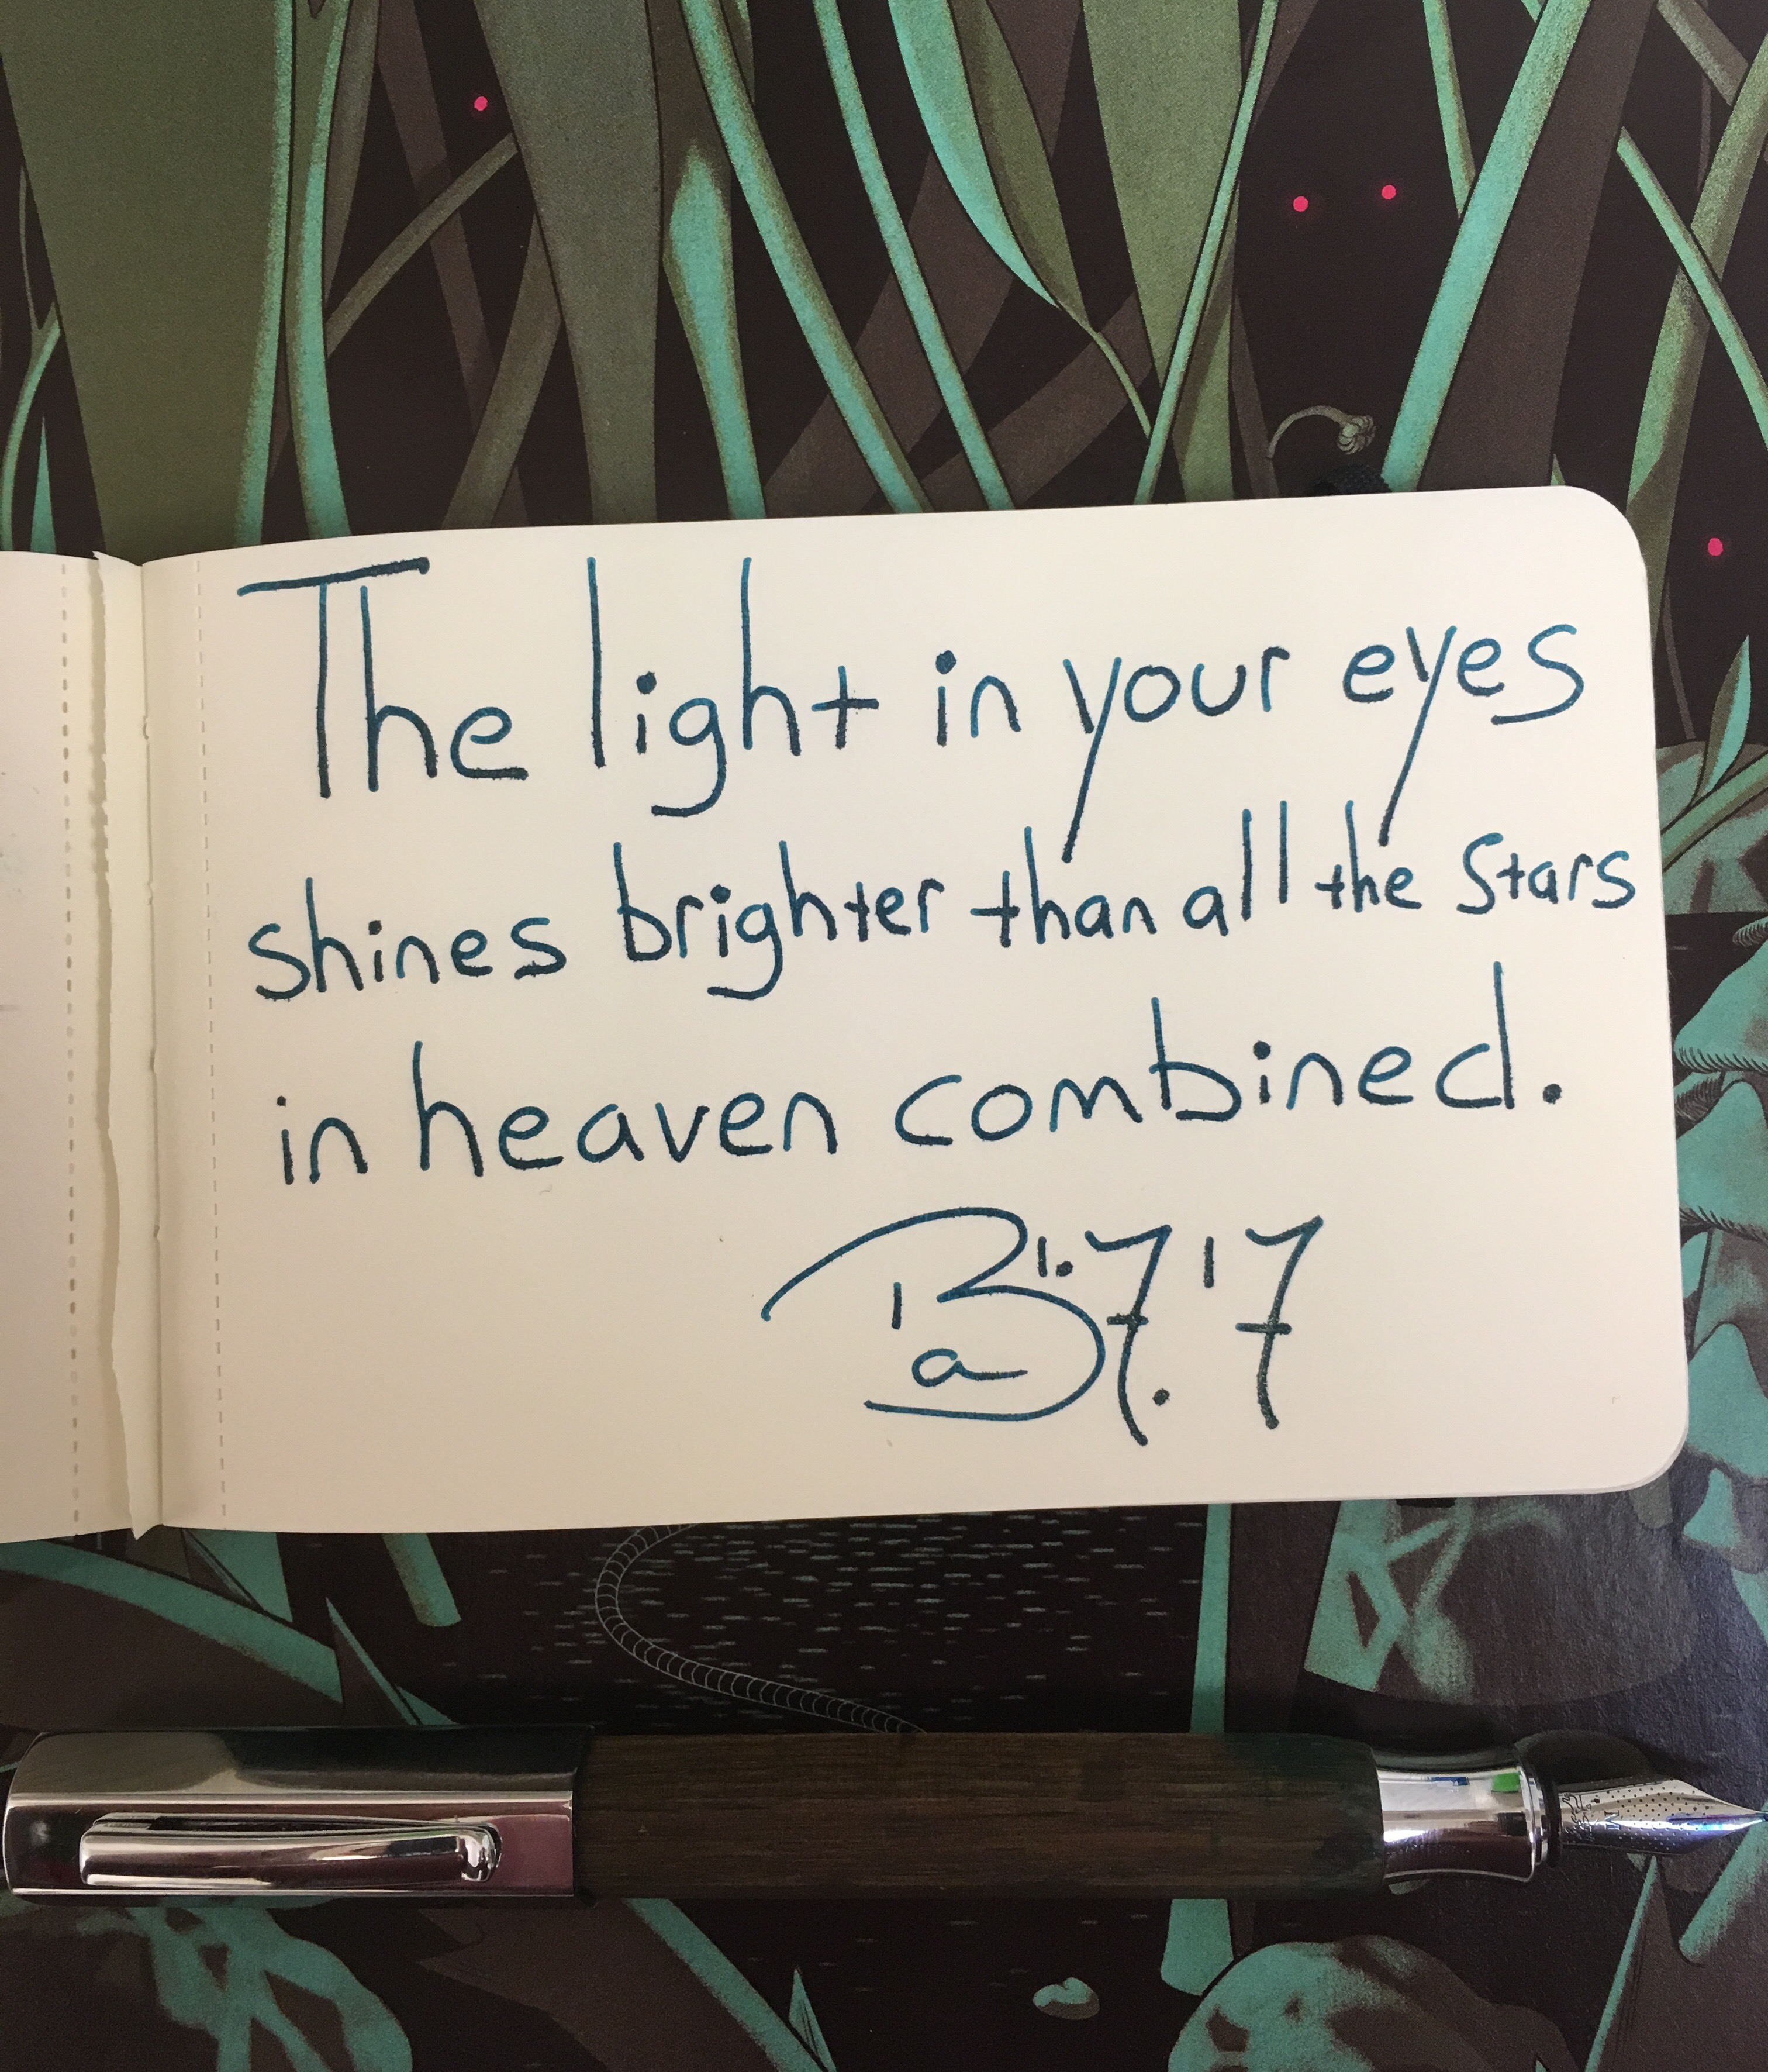 The light in your eyes
shines brighter than all the Stars
in heaven combined.